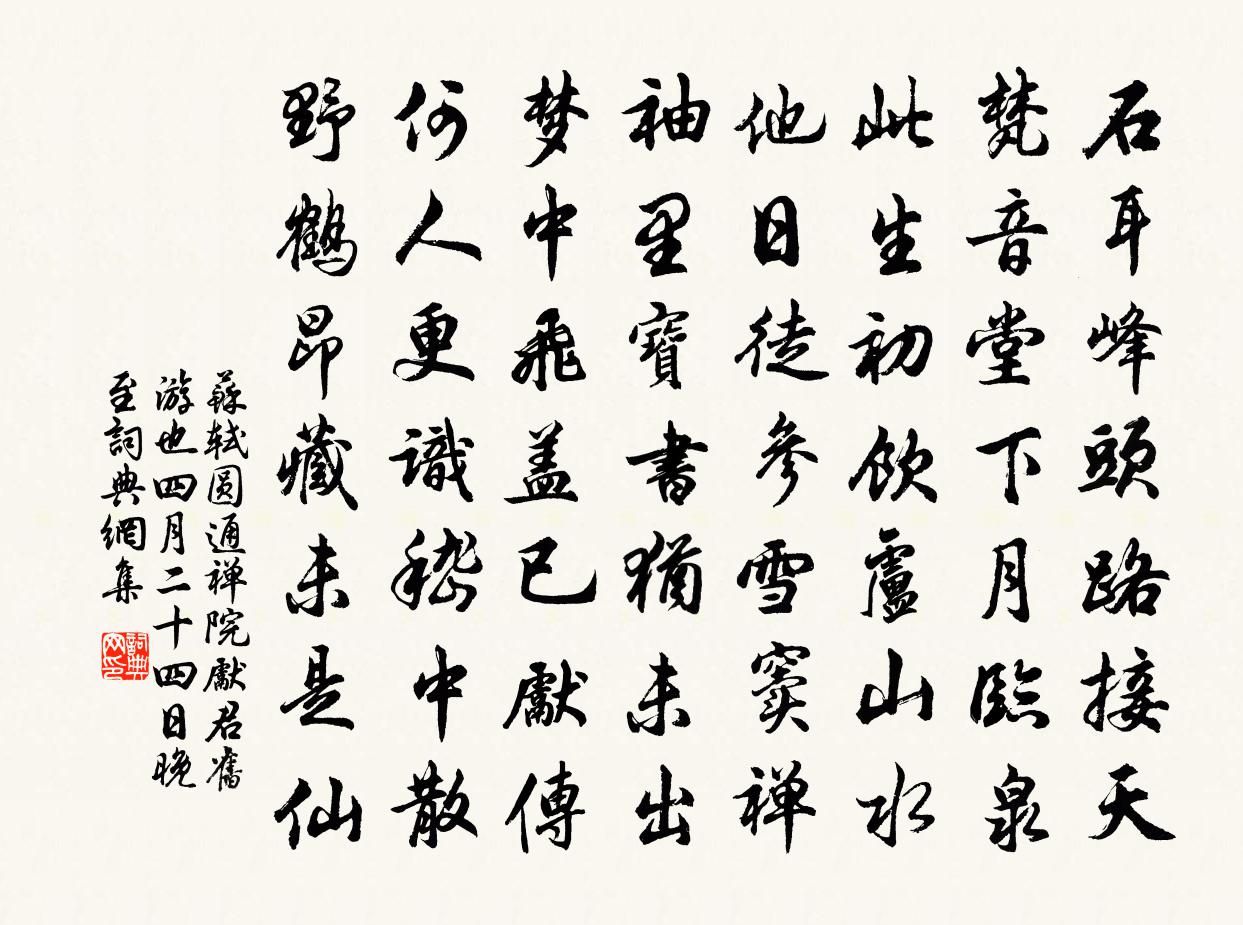 石耳峰頭路接天
梵音堂下月臨泉
此生初飲廬山水
他日徒參雪竇禅
袖里寶書猶未出
梦中飛盖已獻傳
何人更識嵇中散
野鶴昂藏未是仙
蘇軾圆通禅院獻君舊
游也四月二十四日晚
至詞典網集
詞典网印